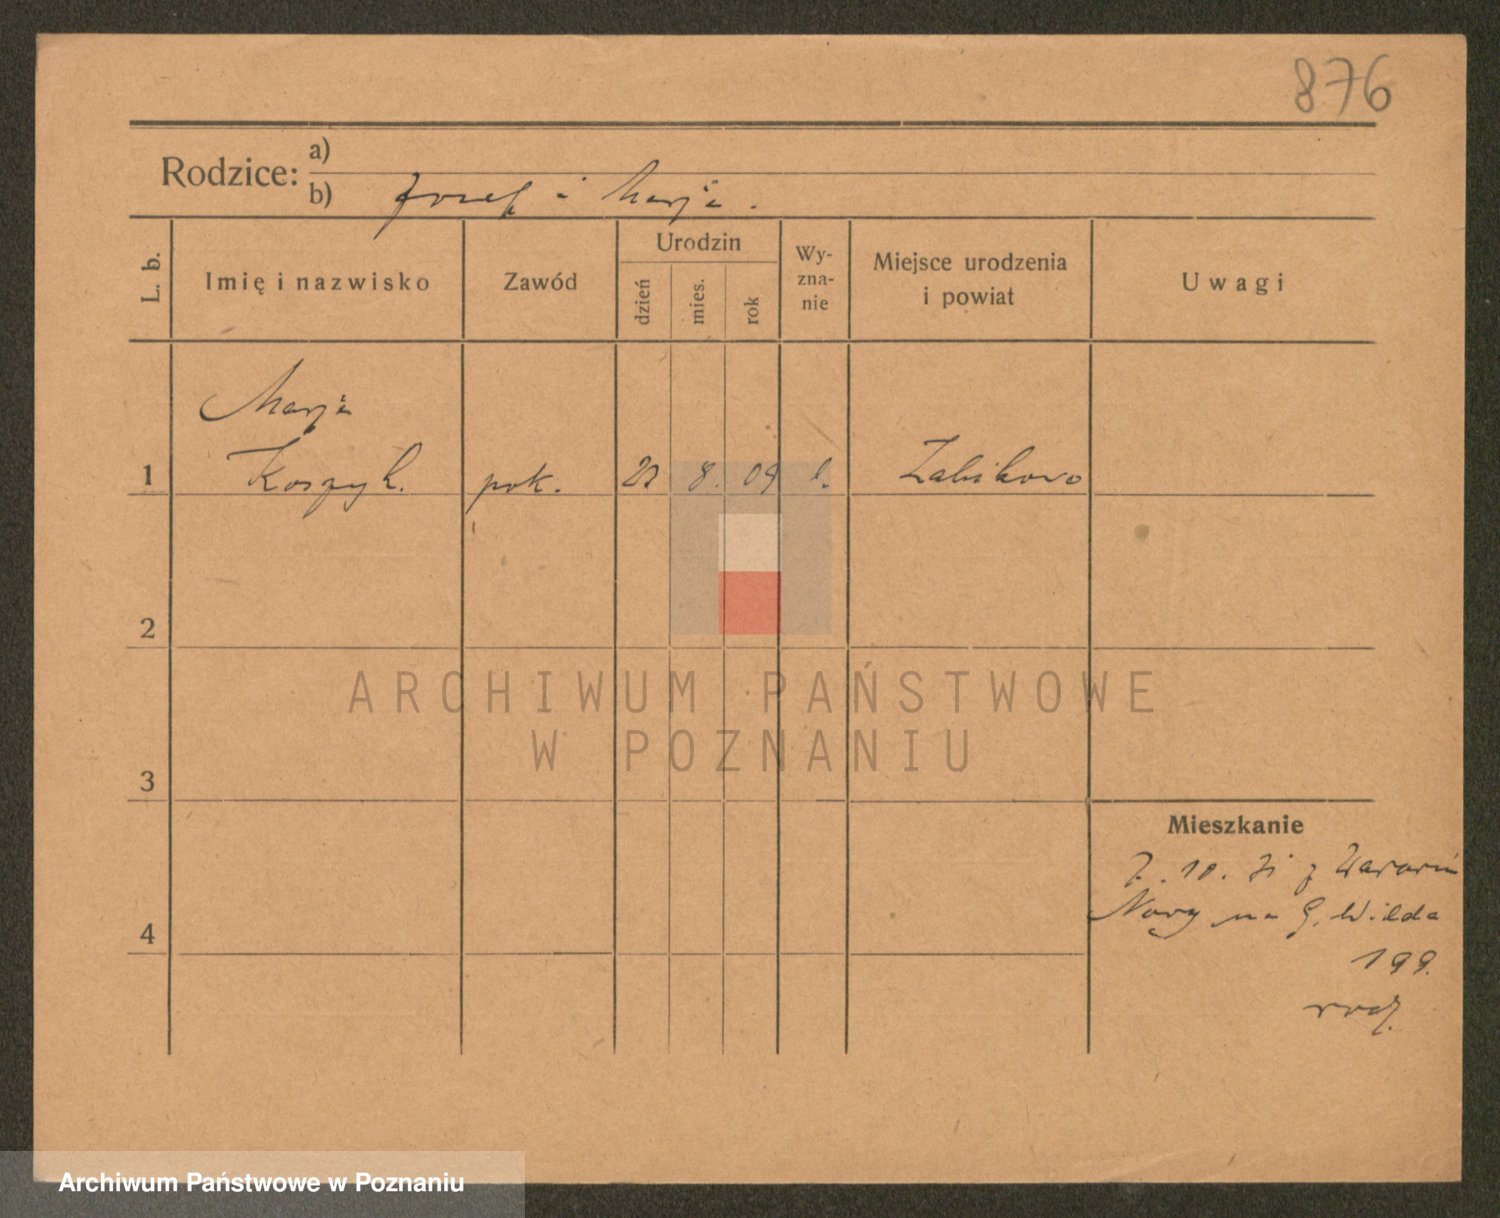 876
Rodzice: a)
b) Józef i Marja.
L. b. Imię i nazwisko Zawód Urodzin dzień mies. rok Wy-zna-nie Miejsce urodzenia i powiat Uwagi
Marja
1 Koszyk. pok. 8. 09 Żabikowo
2
3
4
Mieszkanie
7. 10. 31 z
Nowy na G. Wilda
199.
rodz.
ARCHIWUM PAŃSTWOWE
W POZNANIU
Archiwum Państwowe w Poznaniu